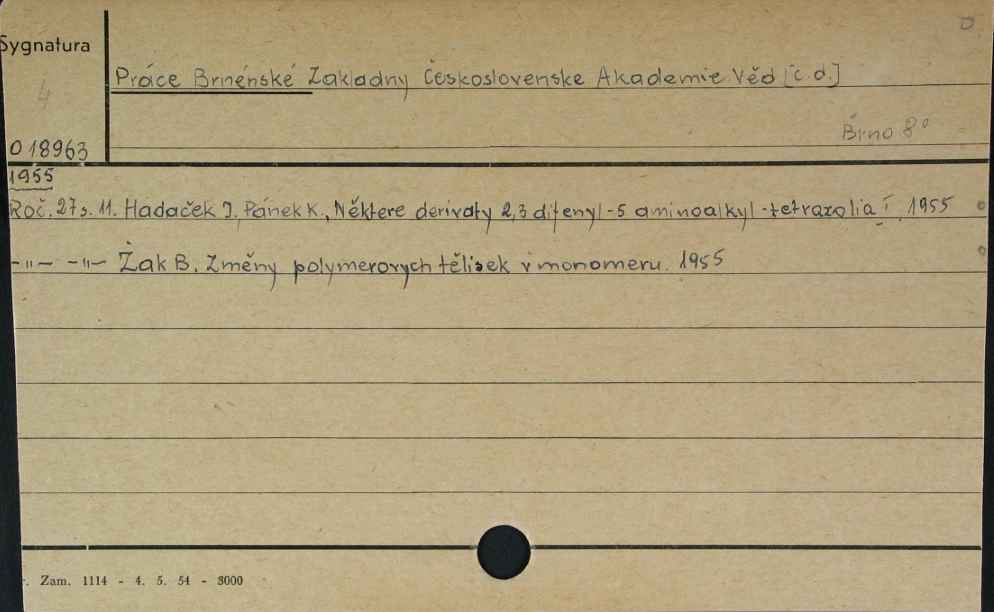 D
Sygnatura
Práce Brněnské Zakladny Československe Akademie Věd [c. d.]
4
Brno 8°
018963
1955
Roč. 27 s. 11. Hadaček J. Pánek K., Některe derivaty 2,3 difenyl-5 aminoalkyl-tetrazolia I. 1955
-"- -"- Žak B. Změny polymerovych tělisek v monomeru. 1955
. Zam. 1114 - 4. 5. 54 - 3000